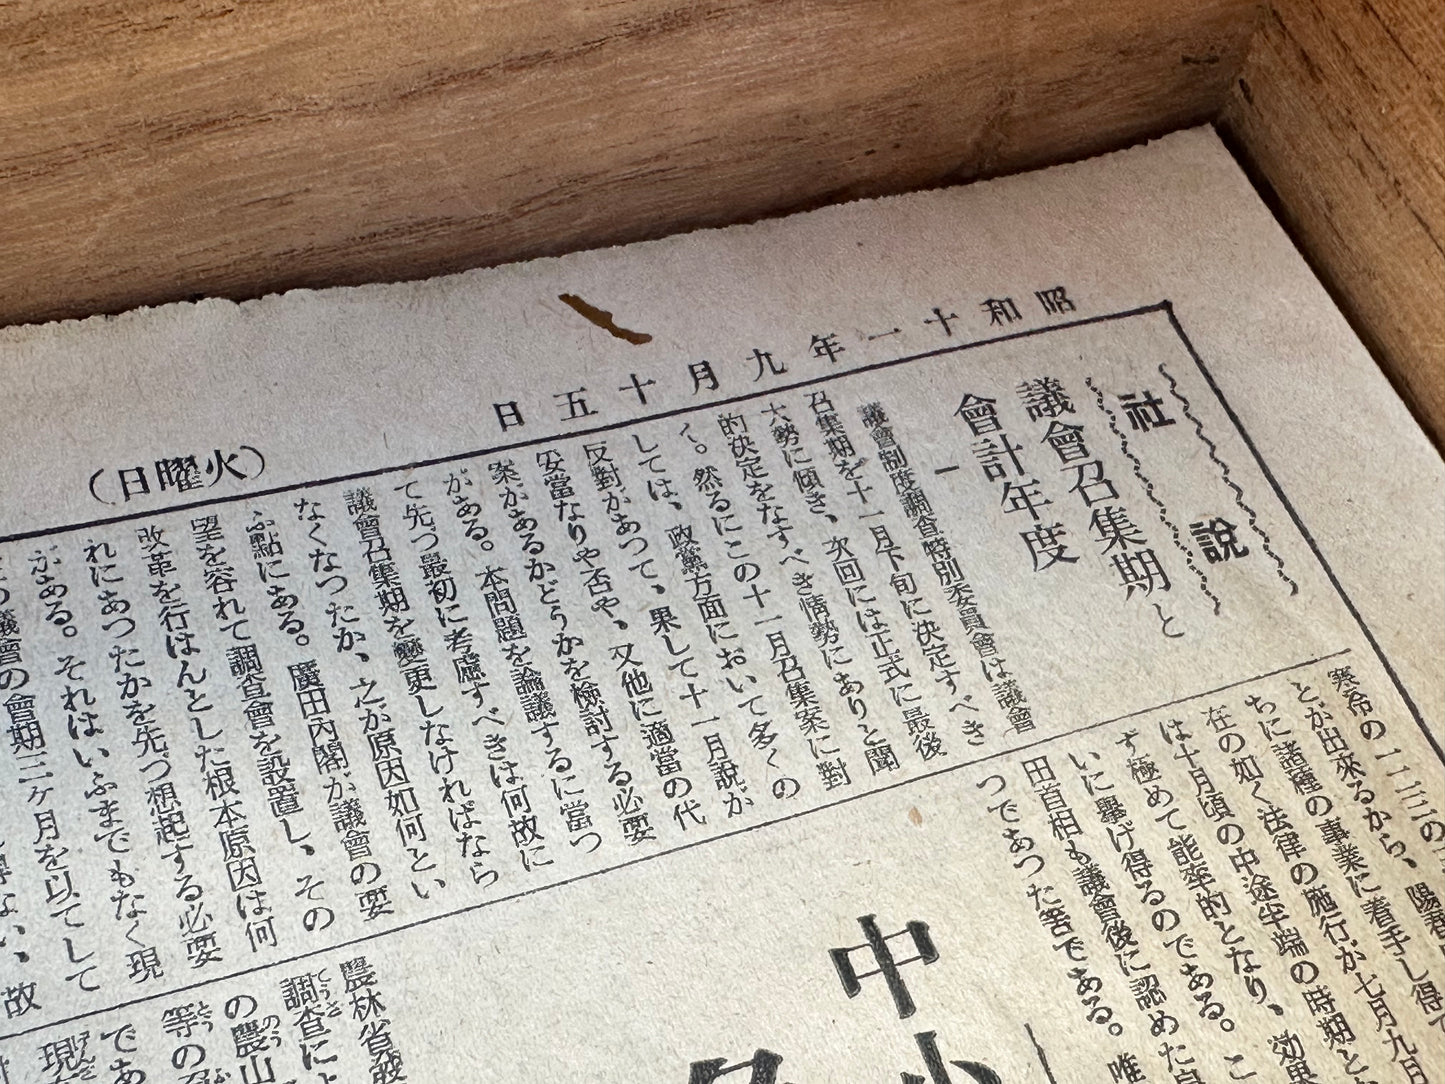 昭和十一年九月十五日
(火曜日)
社說
議會召集期と
會計年度
一
議會制度調査特別委員會は議會
召集期を十一月下旬に決定すべき
大勢に傾き、次回には正式に最後
的決定をなすべき情勢にありと聞
く。然るにこの十一月召集案に對
しては、政黨方面において多くの
反對があつて、果して十一月說が
妥當なりや否や、又他に適當の代
案があるかどうかを檢討する必要
がある。本問題を論議するに當つ
て先づ最初に考慮すべきは何故に
議會召集期を變更しなければなら
なくなつたか、之が原因如何とい
ふ點にある。廣田內閣が議會の要
望を容れて調査會を設置し、その
改革を行はんとした根本原因は何
れにあつたかを先づ想起する必要
がある。それはいふまでもなく現
議會の會期三ヶ月を以てして
ない、故
寒冷の一二三の
とが出來るから、
ちに諸種の事業に着手し得
在の如く法律の施行が七月九月
は十月頃の中途半端の時期と
す極めて能率的となり、効果
いに擧げ得るのである。こ
田首相も議會後に認めた
つであつた筈である。唯
中
小
農林省
調査によ
の農山
等の
であ
現